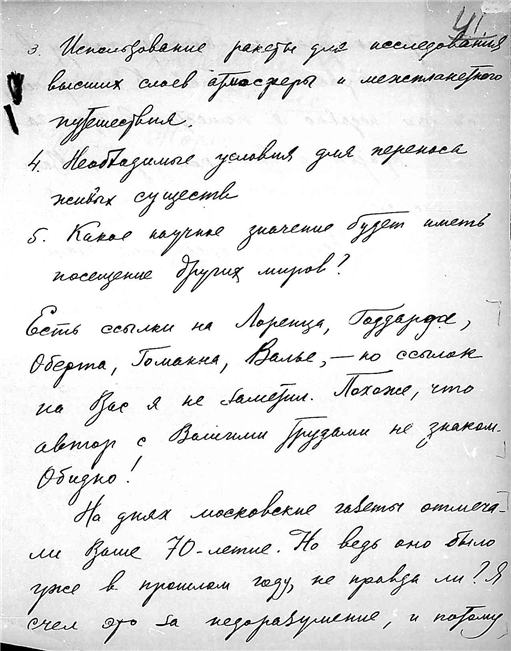 41.
3. Использование ракеты для исследования
высших слоев атмосферы и межпланетного
путешествия.
4. Необходимые условия для переноса
живых существ
5. Какое научное значение будет иметь
посещение других миров?
Есть ссылки на Лоренца, Годдарда,
Оберта, Гоманна, Валье, — но ссылок
на Вас я не заметил. Похоже, что
автор с Вашими трудами не знаком.
Обидно!
На днях московские газеты отмеча-
ли Ваше 70-летие. Но ведь оно было
уже в прошлом году, не правда ли? Я
счел это за недоразумение, и потому,